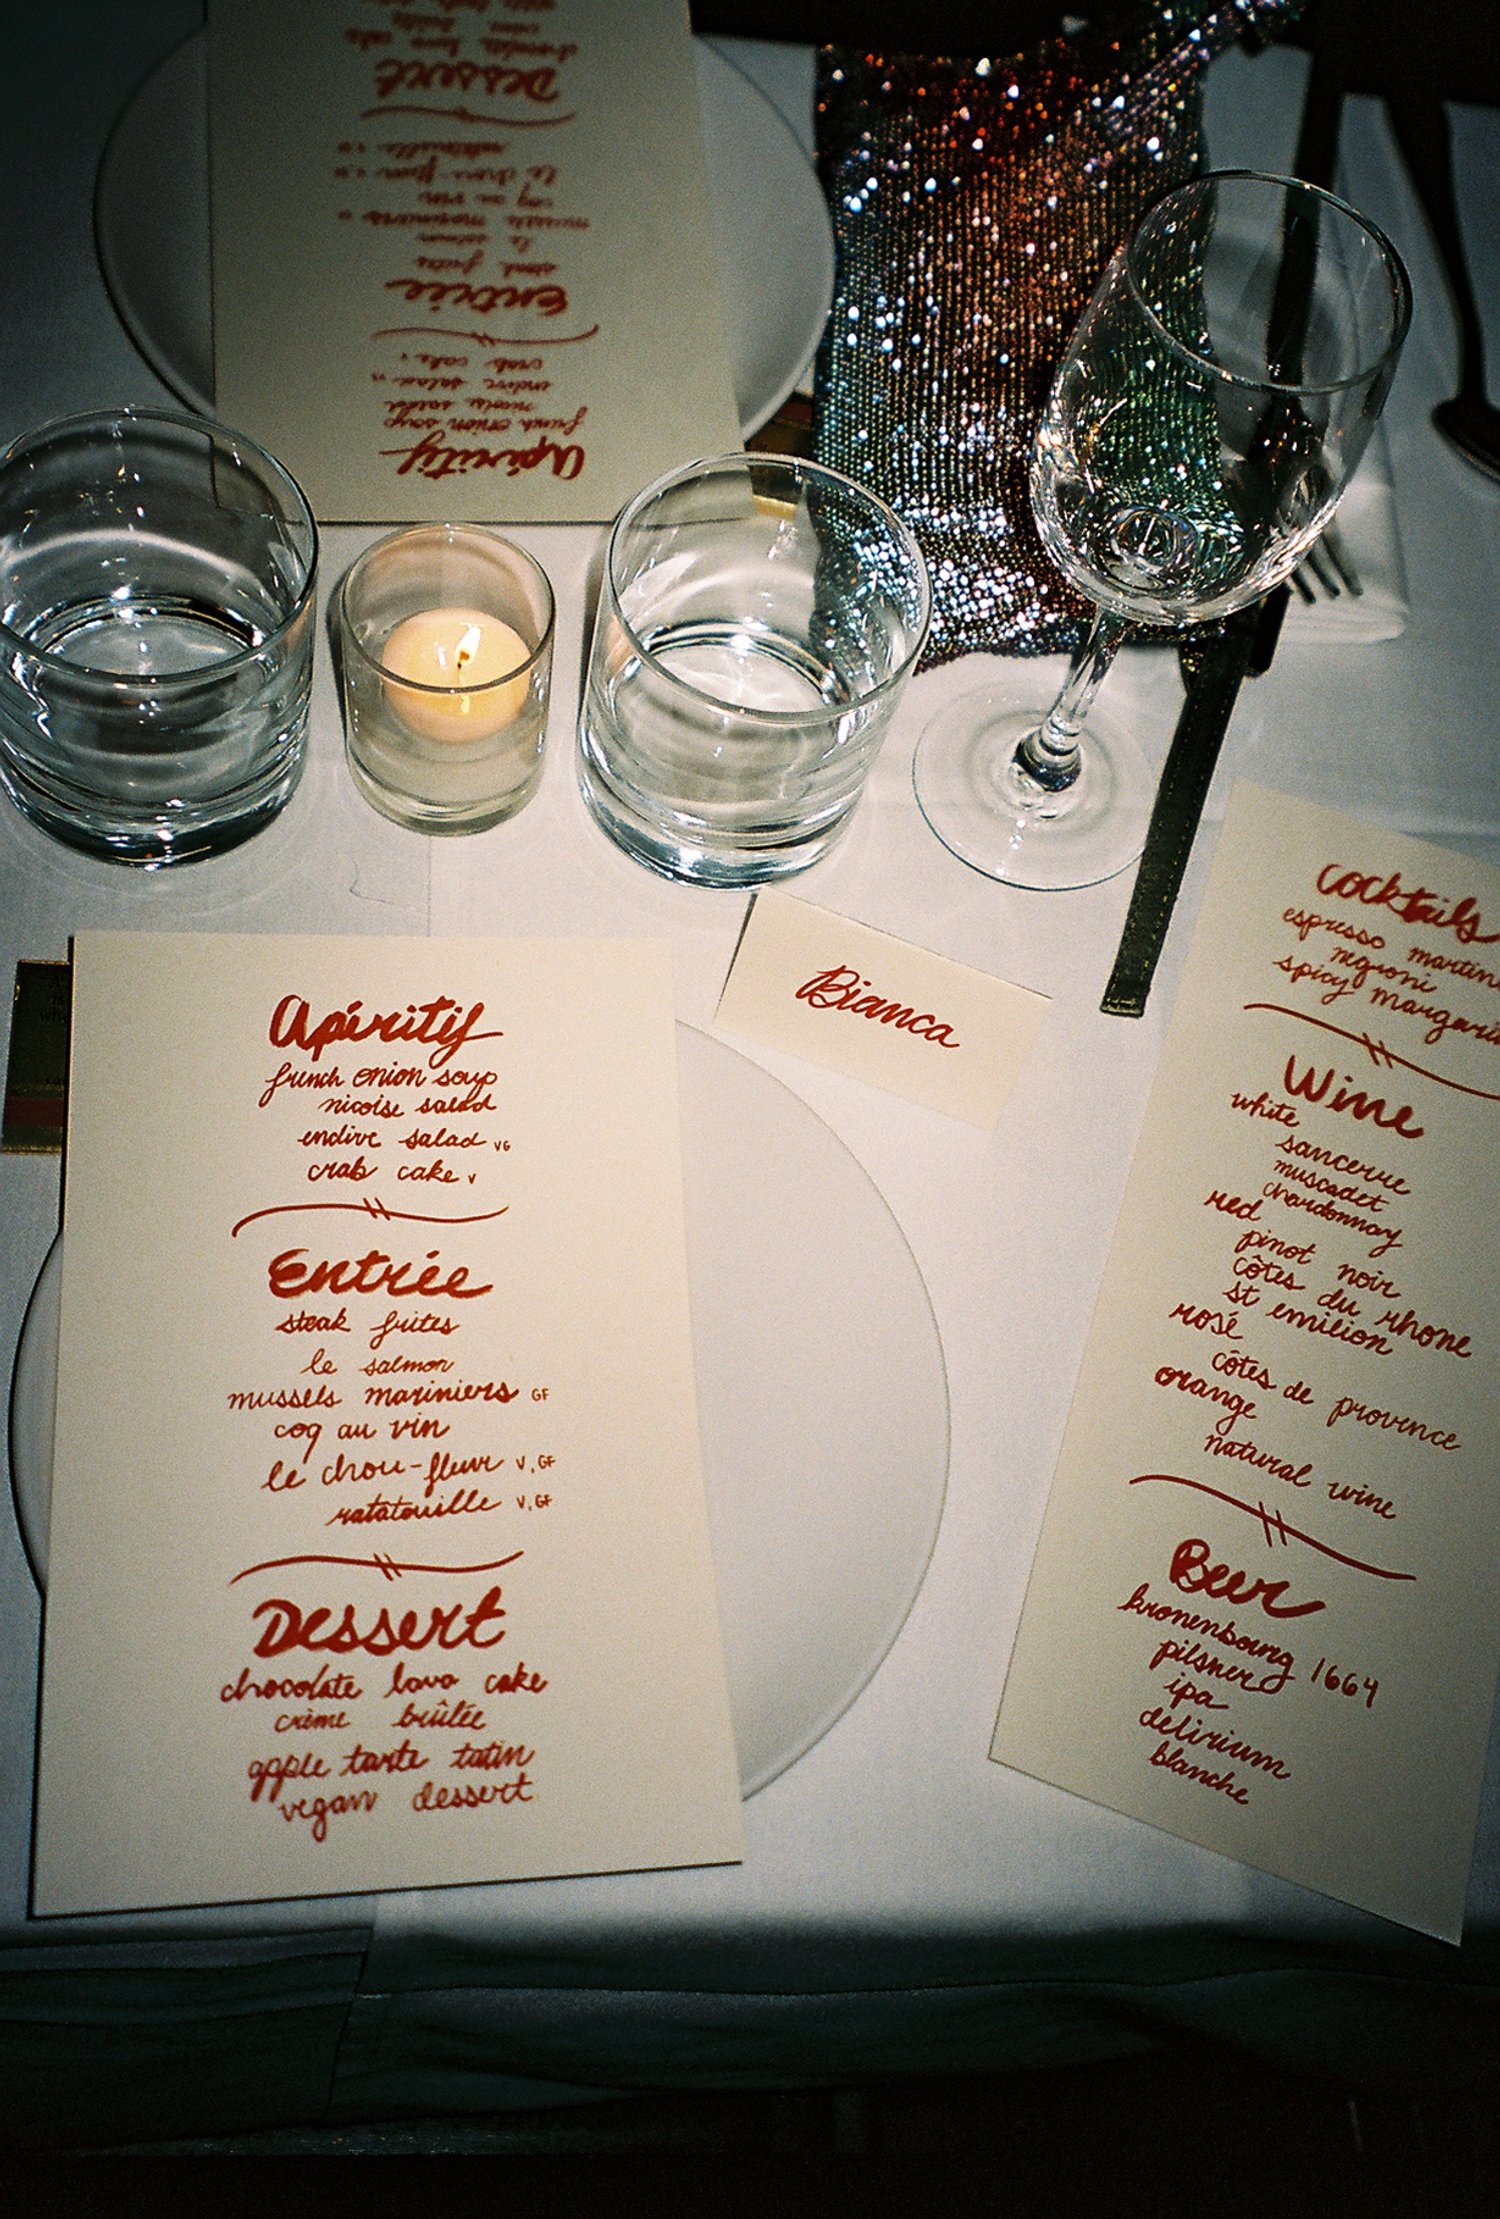 Dessert
ratatouille
le chou-fleur
coq au vin
mussels mariniers
le salmon
steak frites
Entrée
crab cake
endive salad
nicoise salad
french onion soup
Apéritif
Apéritif
french onion soup
nicoise salad
endive salad VG
crab cake V
Entrée
steak frites
le salmon
mussels mariniers GF
coq au vin
le chou-fleur V, GF
ratatouille V, GF
Dessert
chocolate lava cake
crème brûlée
apple tarte tatin
vegan dessert
Bianca
Cocktails
espresso martin
negroni
spicy margari
Wine
white
sancerre
muscadet
chardonnay
red
pinot noir
côtes du rhone
st emilion
rosé
côtes de provence
orange
natural wine
Beer
kronenbourg 1664
pilsner
ipa
delirium
blanche